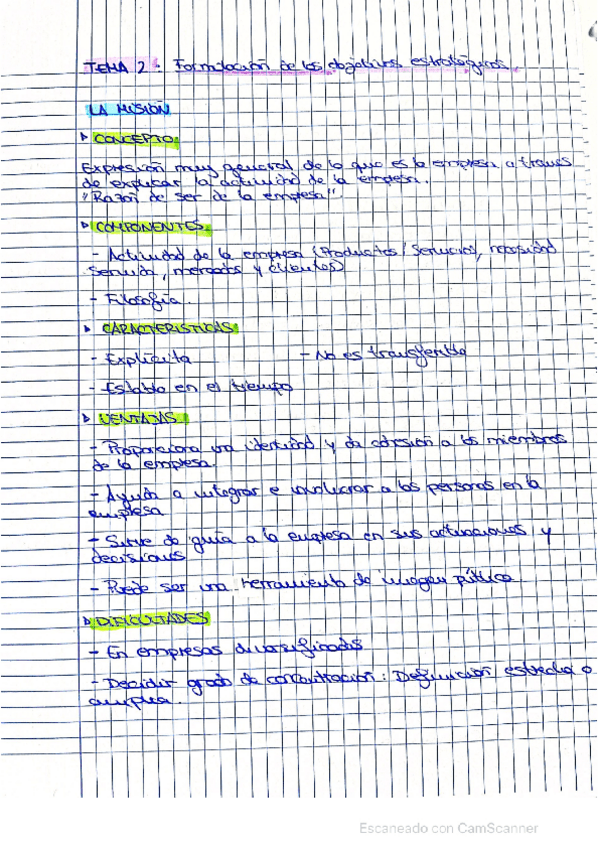 TEMA 2 : Formulación de los objetivos estratégicos.
LA MISIÓN
▸ CONCEPTO:
Expresión muy general de lo que es la empresa a través
de explicar la actividad de la empresa.
"Razón de ser de la empresa".
▸ COMPONENTES.
- Actividad de la empresa (Productos / Servicios, necesidad
servida, mercados y clientes)
- Filosofía.
▸ CARACTERÍSTICAS:
- Explícita - No es transferible
- Estable en el tiempo
▸ VENTAJAS:
- Proporciona una identidad y da cohesión a los miembros
de la empresa.
- Ayuda a integrar e involucrar a las personas en la
empresa
- Sirve de guía a la empresa en sus actuaciones y
decisiones
- Puede ser una herramienta de imagen pública
▸ DIFICULTADES
- En empresas diversificadas
- Decidir grado de concentración: Definición estrecha o
amplia.
Escaneado con CamScanner